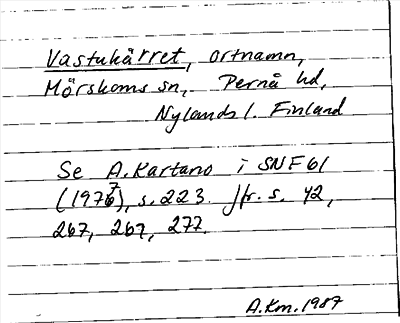 Vastukärret, ortnamn,
Mörskoms sn, Pernå hd,
Nylands l. Finland
Se A. Kartano i SNF 61
(1977), s. 223. Jfr. s. 42,
267, 269, 277.
A.Km. 1987